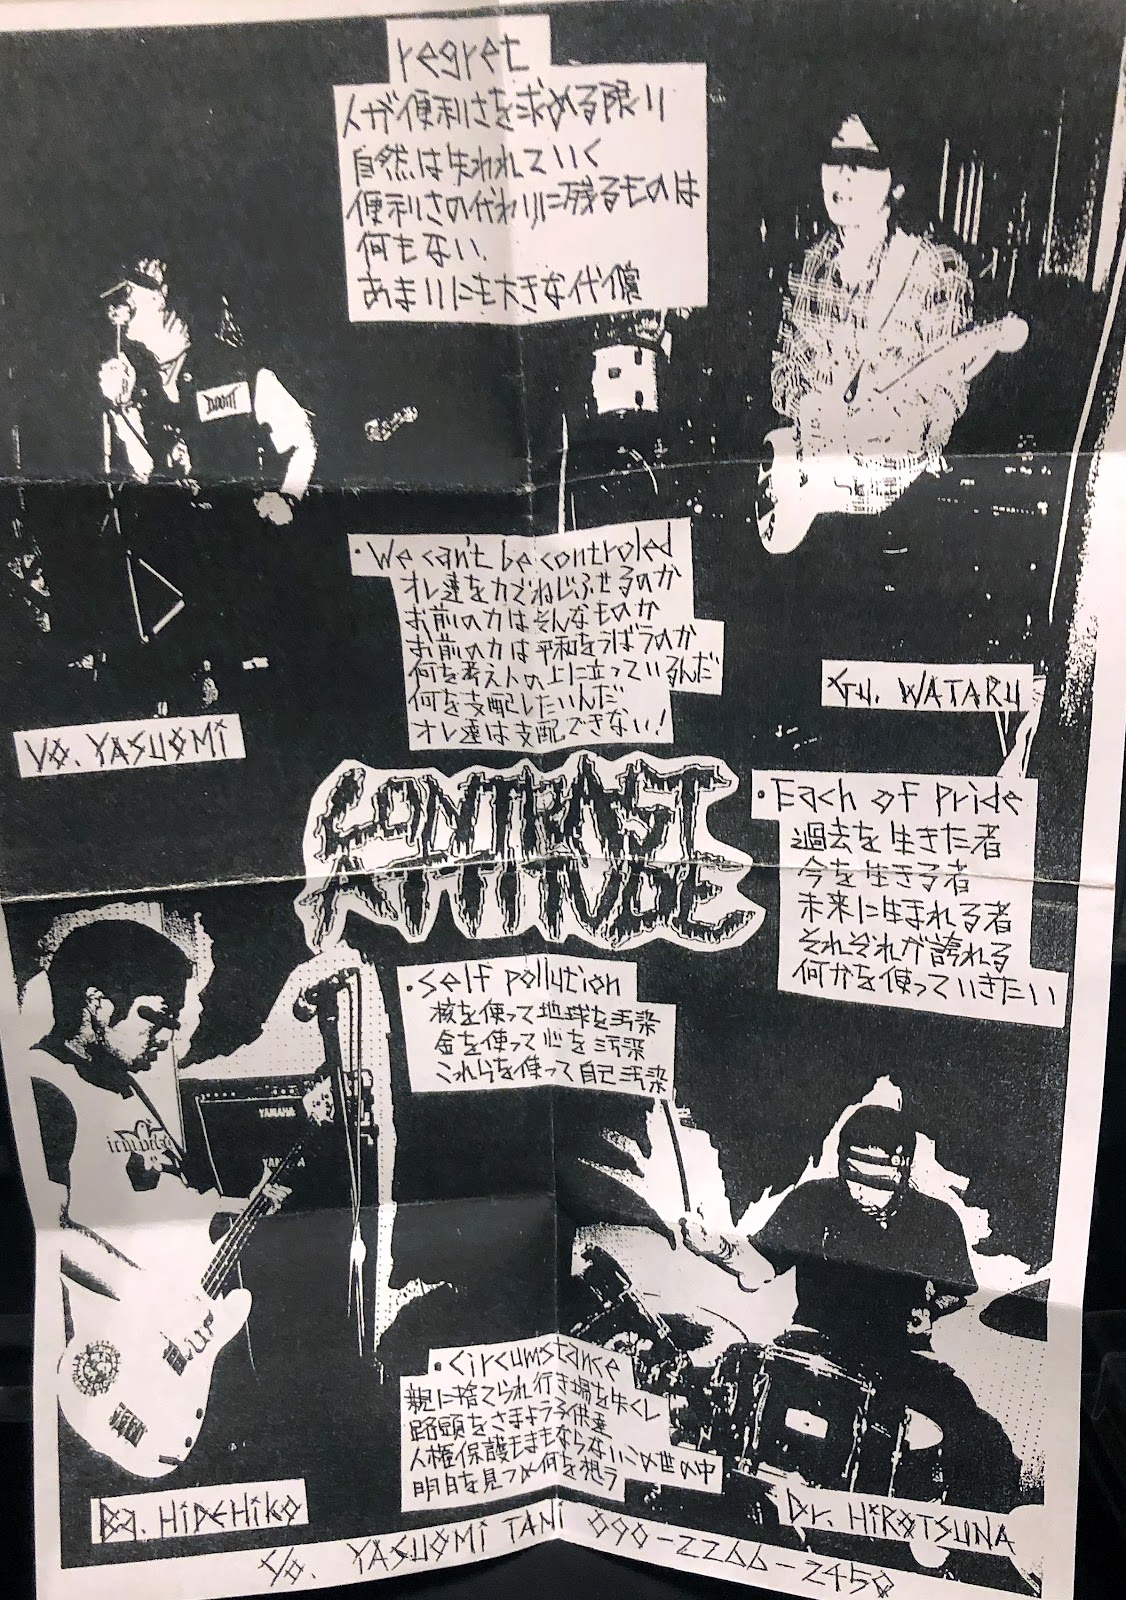 regret
人が便利さを求める限り
自然は失われていく
便利さの代わりに残るものは
何もない.
あまりにも大きな代償
DOOM
・We can't be controled
オレ達を力でねじふせるのか
お前の力はそんなものか
お前の力は平和をうばうのか
何を考え人の上に立っているんだ
何を支配したいんだ
オレ達は支配できない!
Vo. YASUOMi
Gu. WATARU
CONTRAST ATTITUDE
・Each of pride
過去を生きた者
今を生きる者
未来に生まれる者
それぞれが誇れる
何かを使っていきたい
・self pollution
核を使って地球を汚染
金を使って心を汚染
これらを使って自己汚染
YAMAHA
YAMAHA
・circumstance
親に捨てられ行き場を失くし
路頭をさまよう子供達
人権保護もまもならないこの世の中
明日を見つめ何を想う
Ba. HiDEHiKO
Dr. HiROTSUNA
c/o. YASUOMi TANi 090-2266-2450